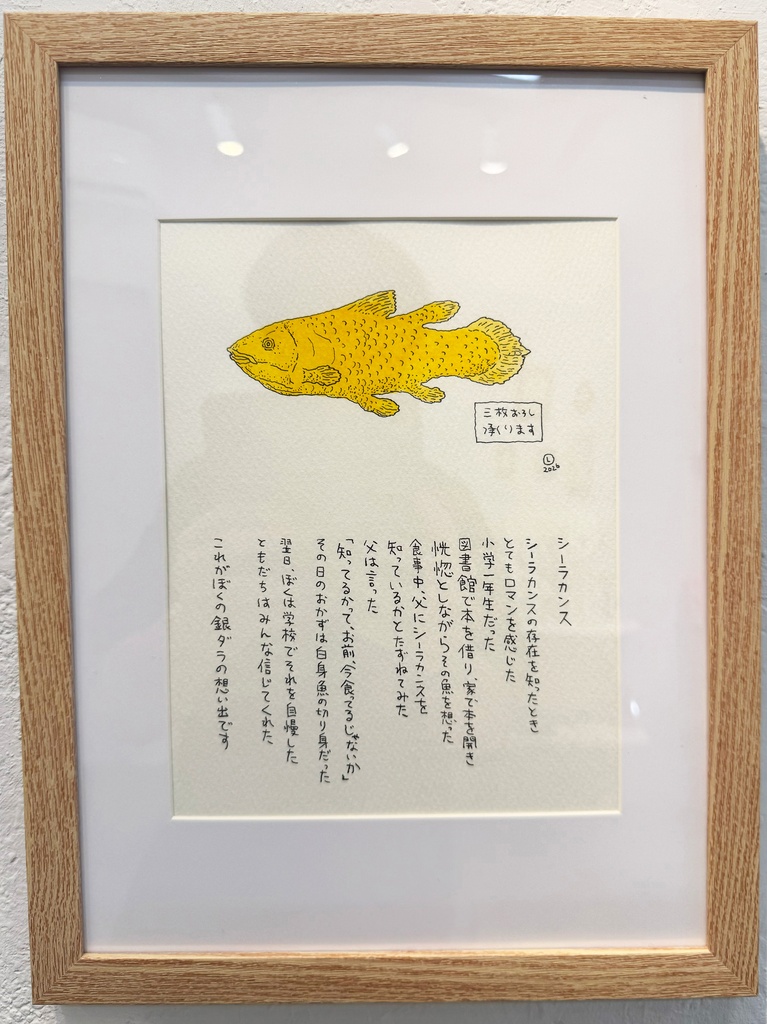 三枚おろし
承ります
L
2026
シーラカンス
シーラカンスの存在を知ったとき
とてもロマンを感じた
小学一年生だった
図書館で本を借り、家で本を開き
恍惚としながらその魚を想った
食事中、父にシーラカンスを
知っているかとたずねてみた
父は言った
「知ってるかって、お前、今食ってるじゃないか」
その日のおかずは白身魚の切り身だった
翌日、ぼくは学校でそれを自慢した
ともだちはみんな信じてくれた
これがぼくの銀ダラの想い出です